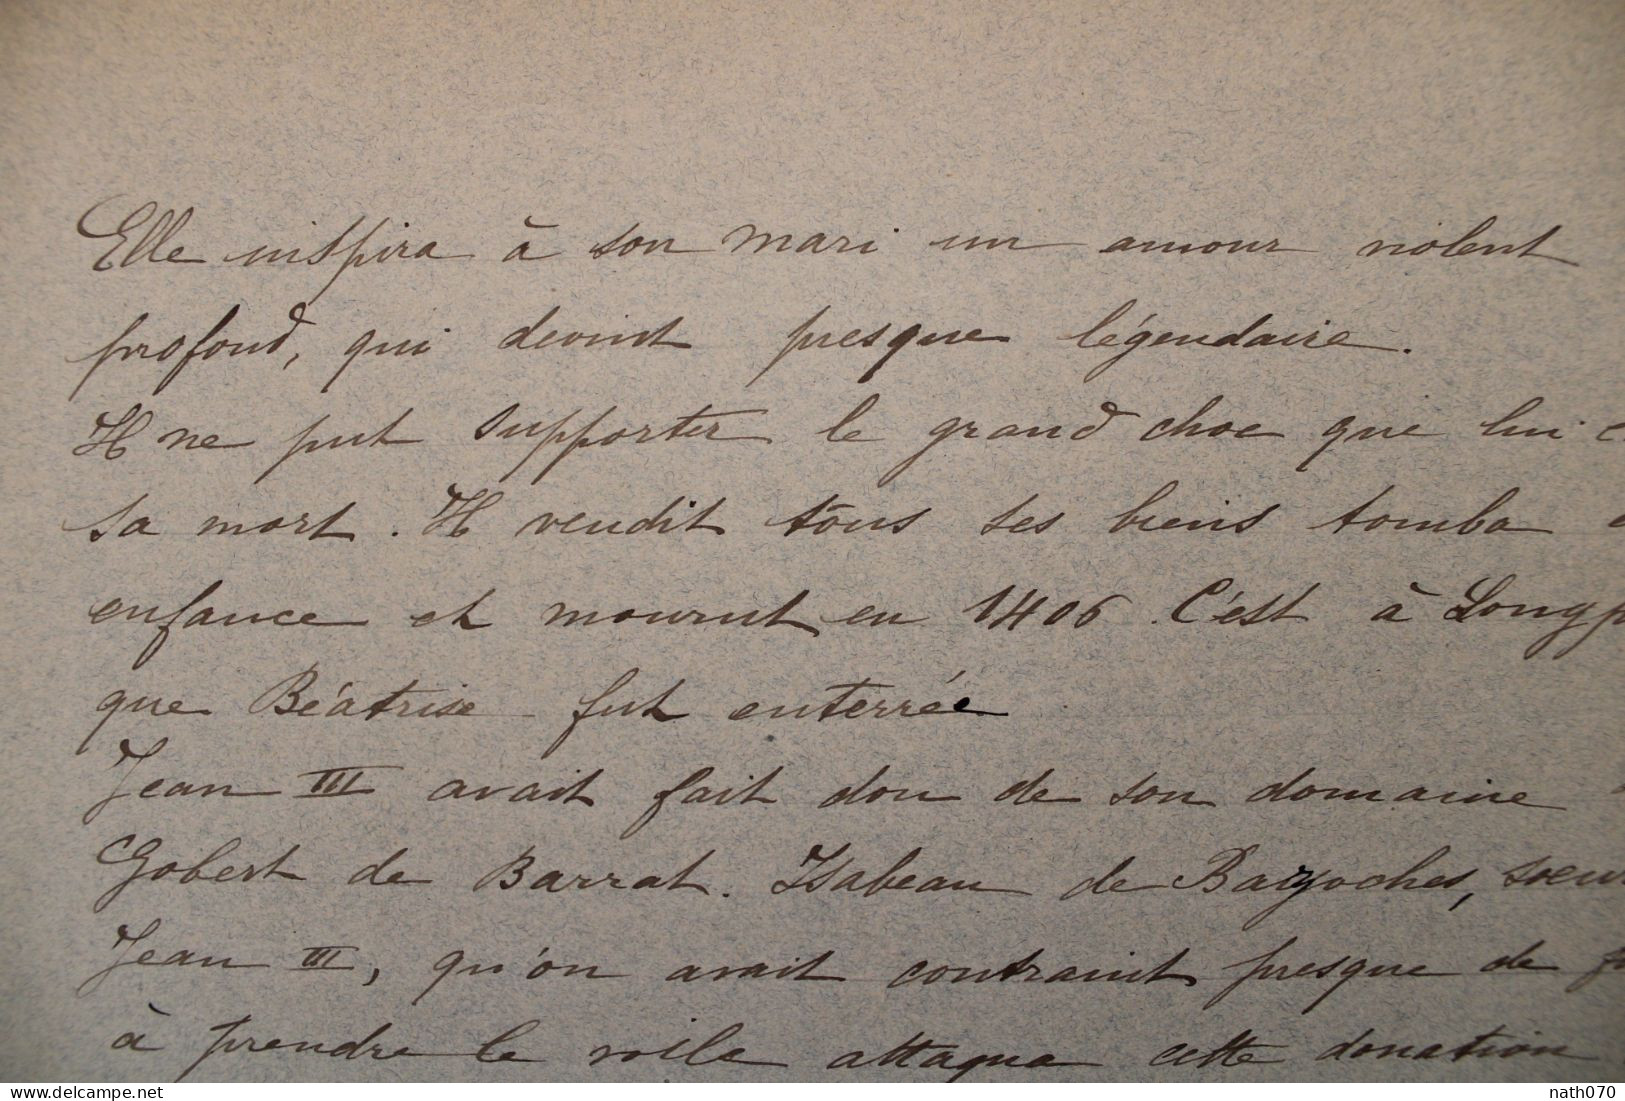 Elle inspira à son mari un amour violent
profond, qui devint presque légendaire.
Il ne put supporter le grand choc que lui
sa mort. Il vendit tous ses biens tomba
enfance et mourut en 1406. C'est à Longp
que Béatrise fut enterrée
Jean III avait fait don de son domaine
Gobert de Barrat. Isabeau de Bazoches, soeur
Jean III, qu'on avait contraint presque de
à prendre le voile attaqua cette donation
delcampe.net
nath070